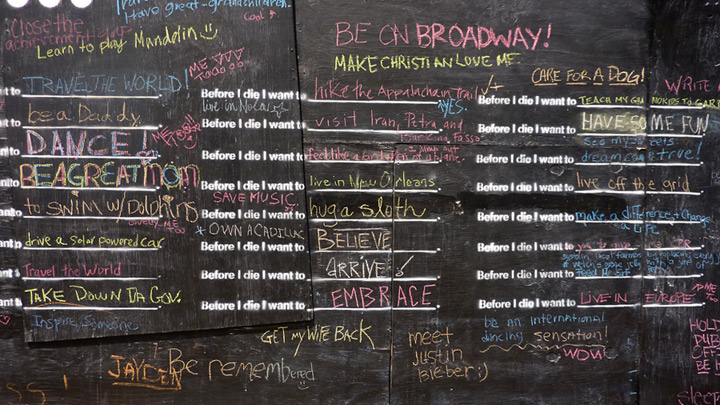 Have great-grandchildren.
cool
close the
achievement
Learn to play Mandolin
ME
TOO
TRAVEL THE WORLD!
be a Daddy.
DANCE!
BE A GREAT MOM
to SWIM w/ Dolphins
drive a solar powered car
Travel the World
TAKE DOWN DA GOV.
Inspire Someone
BE ON BROADWAY!
MAKE CHRISTIAN LOVE ME
Before I die I want to hike the Appalachain Trail
live in Nola
YES
Before I die I want to visit Iran, Petra and
Before I die I want to feel like a bird
Before I die I want to live in New Orleans
SAVE MUSIC
Before I die I want to hug a sloth
OWN A CADILLAC
Before I die I want to BELIEVE
Before I die I want to ARRIVE!
Before I die I want to EMBRACE.
GET MY WIFE BACK
CARE FOR A DOG!
WRITE
Before I die I want to TEACH MY
Before I die I want to HAVE SOME FUN
see my
Before I die I want to dream come true!
Before I die I want to live off the grid
Before I die I want to make a difference + Change
a Life
Before I die I want to
Before I die I want to
Before I die I want to LIVE IN EUROPE
be an international
dancing sensation!
WOW!
meet
Justin
Bieber :)
JAYDEN
Be remembered
sleep